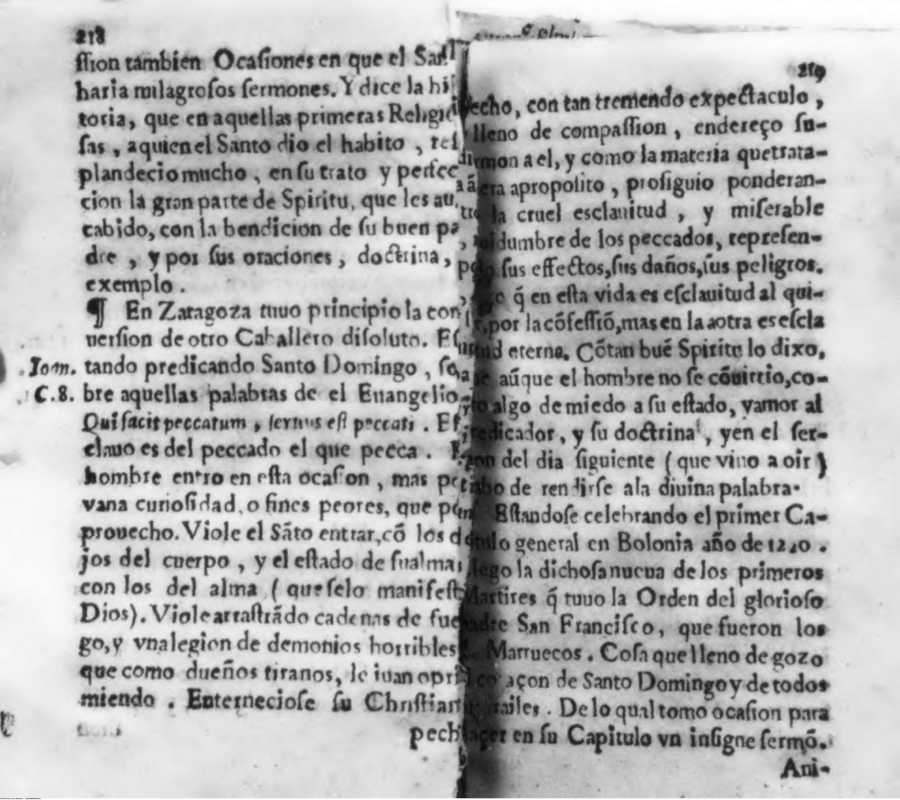 218
ssion tambien Ocasiones en que el San
haria milagrosos sermones. Y dice la his
toria, que en aquellas primeras Religio
sas, a quien el Santo dio el habito, res
plandecio mucho, en su trato y perfec
cion la gran parte de Spiritu, que les au
cabido, con la bendicion de su buen pa
dre, y por sus oraciones, doctrina,
exemplo.
¶ En Zaragoza tuuo principio la con
uersion de otro Caballero disoluto. Es
Ioan. tando predicando Santo Domingo, so
C.8. bre aquellas palabras de el Euangelio
Qui facit peccatum, seruus est peccati. Es
clauo es del peccado el que pecca.
hombre entro en esta ocasion, mas po
vana curiosidad, o fines peores, que po
prouecho. Viole el Sãto entrar, cõ los o
jos del cuerpo, y el estado de su alma
con los del alma (que selo manifest
Dios). Viole arrastrãdo cadenas de fue
go, y vna legion de demonios horribles
que como dueños tiranos, le iuan opri
miendo. Enterneciose su Christian
pech
219
pecho, con tan tremendo expectaculo,
lleno de compassion, endereço su ser-
mon a el, y como la materia que trata-
era aproposito, prosiguio ponderan-
la cruel esclauitud, y miserable
dumbre de los peccados, represen-
sus effectos, sus daños, sus peligros.
q̃ en esta vida es esclauitud al qui-
por la cõfessiõ, mas en la aotra es escla
eterna. Cõtan buẽ Spirito lo dixo,
aũque el hombre no se cõuirtio, co-
algo de miedo a su estado, y amor al
predicador, y su doctrina, y en el ser-
mon del dia siguiente (que vino a oir)
de rendirse ala diuina palabra.
Estandose celebrando el primer Ca-
general en Bolonia año de 1220.
llego la dichosa nueua de los primeros
Martires q̃ tuuo la Orden del glorioso
Padre San Francisco, que fueron los
Marruecos. Cosa que lleno de gozo
coraçon de Santo Domingo y de todos
frailes. De lo qual tomo ocasion para
hacer en su Capitulo vn insigne sermõ.
Ani-